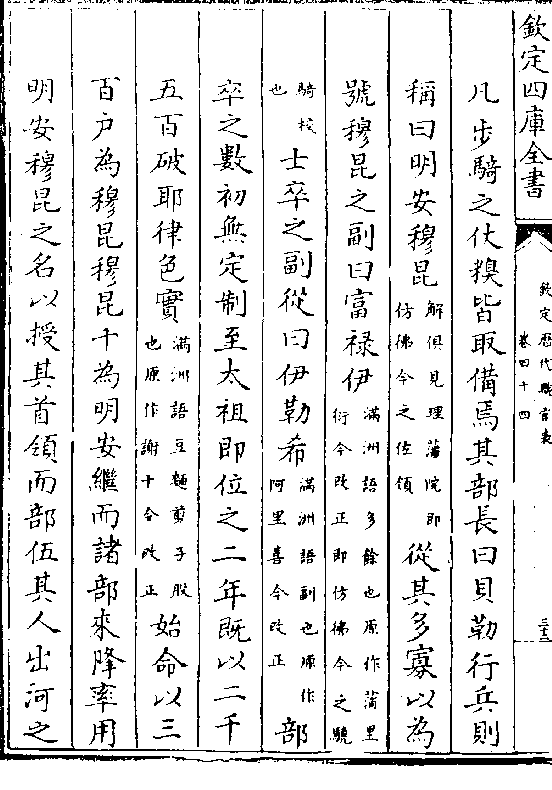 欽定四庫全書
欽定歷代職官表
卷四十四
三十三
凡步騎之仗糗皆取備焉其部長曰貝勒行兵則
稱曰明安穆昆
解俱見理藩院即
仿佛今之佐領
從其多寡以為
號穆昆之副曰富禄伊
滿洲語多餘也原作蒲里
衍今改正即仿佛今之驍
騎校
也
士卒之副從曰伊勒希
滿洲語副也原作
阿里喜今改正
部
卒之數初無定制至太祖即位之二年既以二千
五百破耶律色實
滿洲語豆麵剪子股
也原作謝十今改正
始命以三
百户為穆昆穆昆十為明安繼而諸部來降率用
明安穆昆之名以授其首領而部伍其人出河之